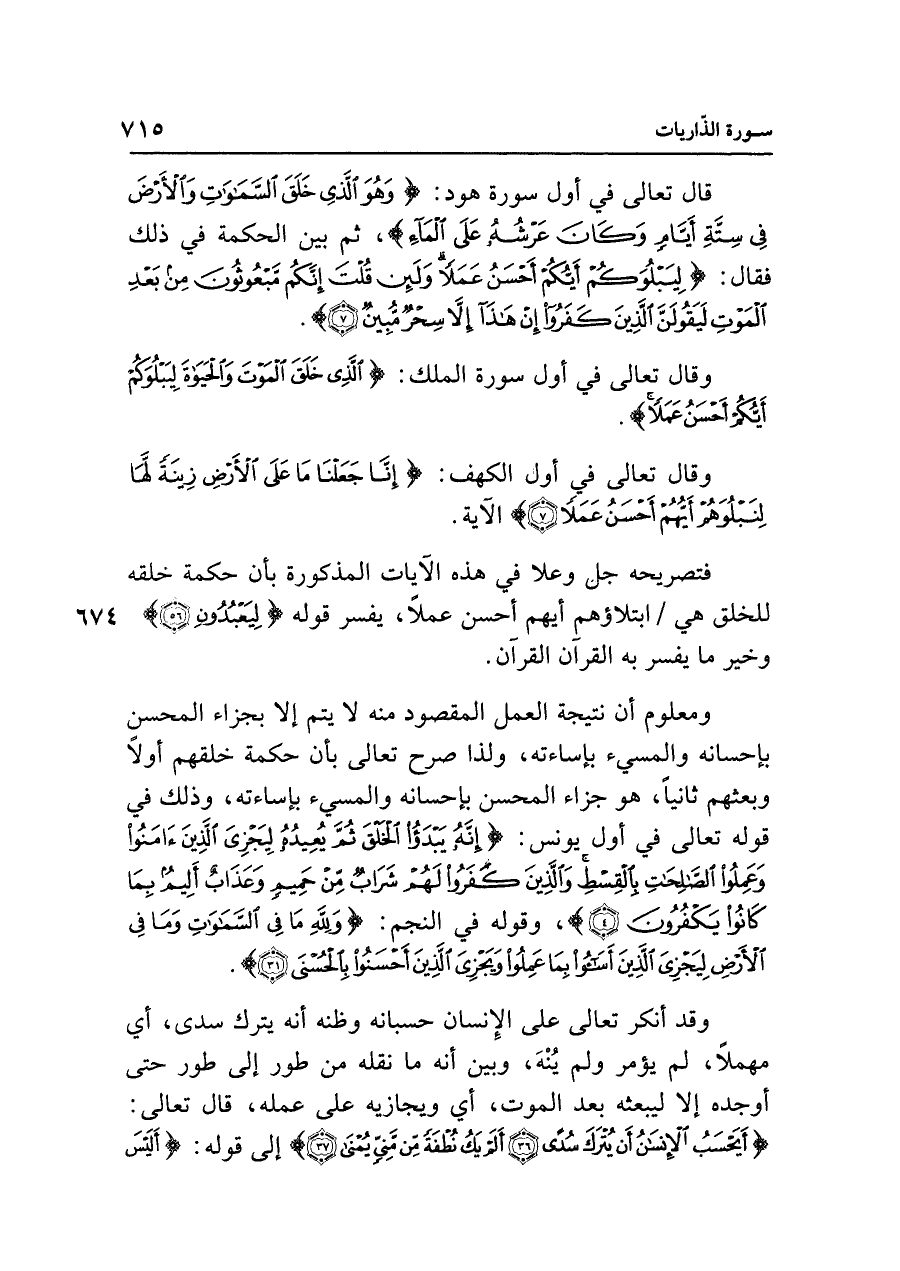 سورة الذّاريات ٧١٥
قال تعالى في أول سورة هود: ﴿ وَهُوَ ٱلَّذِى خَلَقَ ٱلسَّمَٰوَٰتِ وَٱلْأَرْضَ
فِى سِتَّةِ أَيَّامٍ وَكَانَ عَرْشُهُۥ عَلَى ٱلْمَآءِ ﴾، ثم بين الحكمة في ذلك
فقال: ﴿ لِيَبْلُوَكُمْ أَيُّكُمْ أَحْسَنُ عَمَلًا ۗ وَلَئِن قُلْتَ إِنَّكُم مَّبْعُوثُونَ مِنۢ بَعْدِ
ٱلْمَوْتِ لَيَقُولَنَّ ٱلَّذِينَ كَفَرُوٓا۟ إِنْ هَٰذَآ إِلَّا سِحْرٌ مُّبِينٌ ﴿٧﴾ ﴾.
وقال تعالى في أول سورة الملك: ﴿ ٱلَّذِى خَلَقَ ٱلْمَوْتَ وَٱلْحَيَوٰةَ لِيَبْلُوَكُمْ
أَيُّكُمْ أَحْسَنُ عَمَلًا ۚ ﴾.
وقال تعالى في أول الكهف: ﴿ إِنَّا جَعَلْنَا مَا عَلَى ٱلْأَرْضِ زِينَةً لَّهَا
لِنَبْلُوَهُمْ أَيُّهُمْ أَحْسَنُ عَمَلًا ﴿٧﴾ ﴾ الآية.
فتصريحه جل وعلا في هذه الآيات المذكورة بأن حكمة خلقه
للخلق هي / ابتلاؤهم أيهم أحسن عملاً، يفسر قوله ﴿ لِيَعْبُدُونِ ﴿٥٦﴾ ﴾ ٦٧٤
وخير ما يفسر به القرآن القرآن.
ومعلوم أن نتيجة العمل المقصود منه لا يتم إلا بجزاء المحسن
بإحسانه والمسيء بإساءته، ولذا صرح تعالى بأن حكمة خلقهم أولاً
وبعثهم ثانياً، هو جزاء المحسن بإحسانه والمسيء بإساءته، وذلك في
قوله تعالى في أول يونس: ﴿ إِنَّهُۥ يَبْدَؤُا۟ ٱلْخَلْقَ ثُمَّ يُعِيدُهُۥ لِيَجْزِىَ ٱلَّذِينَ ءَامَنُوا۟
وَعَمِلُوا۟ ٱلصَّٰلِحَٰتِ بِٱلْقِسْطِ ۚ وَٱلَّذِينَ كَفَرُوا۟ لَهُمْ شَرَابٌ مِّنْ حَمِيمٍ وَعَذَابٌ أَلِيمٌۢ بِمَا
كَانُوا۟ يَكْفُرُونَ ﴿٤﴾ ﴾، وقوله في النجم: ﴿ وَلِلَّهِ مَا فِى ٱلسَّمَٰوَٰتِ وَمَا فِى
ٱلْأَرْضِ لِيَجْزِىَ ٱلَّذِينَ أَسَٰٓـُٔوا۟ بِمَا عَمِلُوا۟ وَيَجْزِىَ ٱلَّذِينَ أَحْسَنُوا۟ بِٱلْحُسْنَى ﴿٣١﴾ ﴾.
وقد أنكر تعالى على الإنسان حسبانه وظنه أنه يترك سدى، أي
مهملاً، لم يؤمر ولم يُنْهَ، وبين أنه ما نقله من طور إلى طور حتى
أوجده إلا ليبعثه بعد الموت، أي ويجازيه على عمله، قال تعالى:
﴿ أَيَحْسَبُ ٱلْإِنسَٰنُ أَن يُتْرَكَ سُدًى ﴿٣٦﴾ أَلَمْ يَكُ نُطْفَةً مِّن مَّنِىٍّ يُمْنَىٰ ﴿٣٧﴾ ﴾ إلى قوله: ﴿ أَلَيْسَ